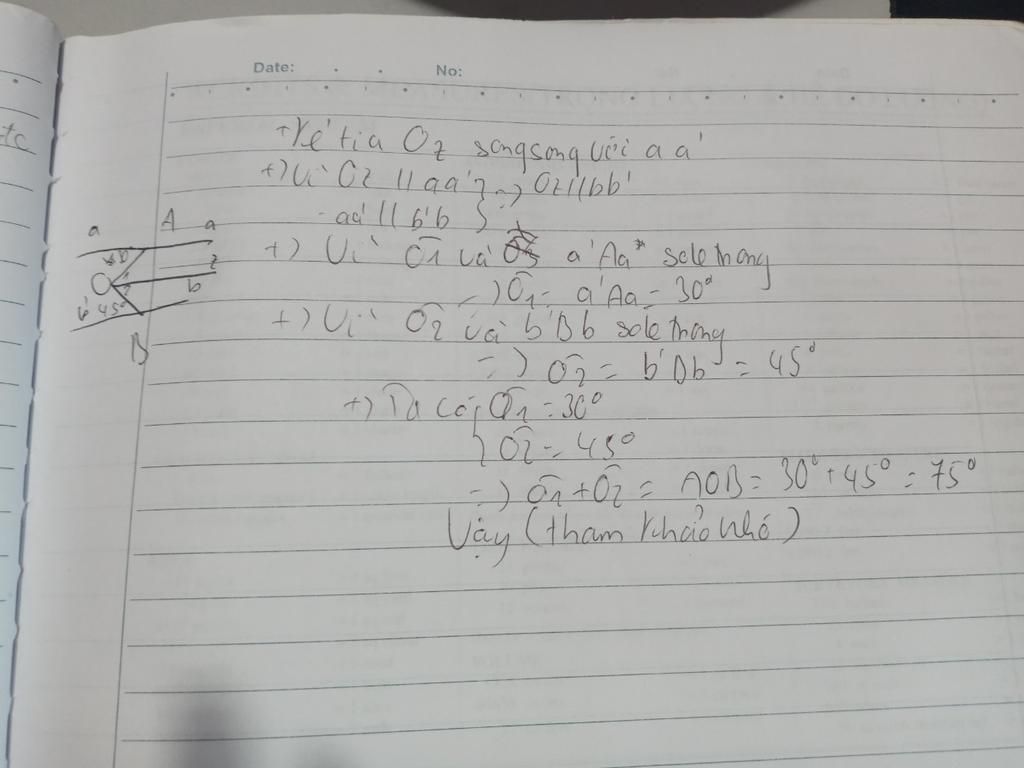 Date: No:
+) Kẻ tia Oz song song với a a'
+) Vì Oz // aa' } => Oz // bb'
aa' // b'b
a A a
+) Vì O1 và a'Aa sole trong
z
=) O1 = a'Aa = 30°
b
b' 45°
+) Vì O2 và b'Bb sole trong
B
=) O2 = b'Bb = 45°
+) Ta có { O1 = 30°
O2 = 45°
=) O1 + O2 = AOB = 30° + 45° = 75°
Vậy (tham khảo nhó)